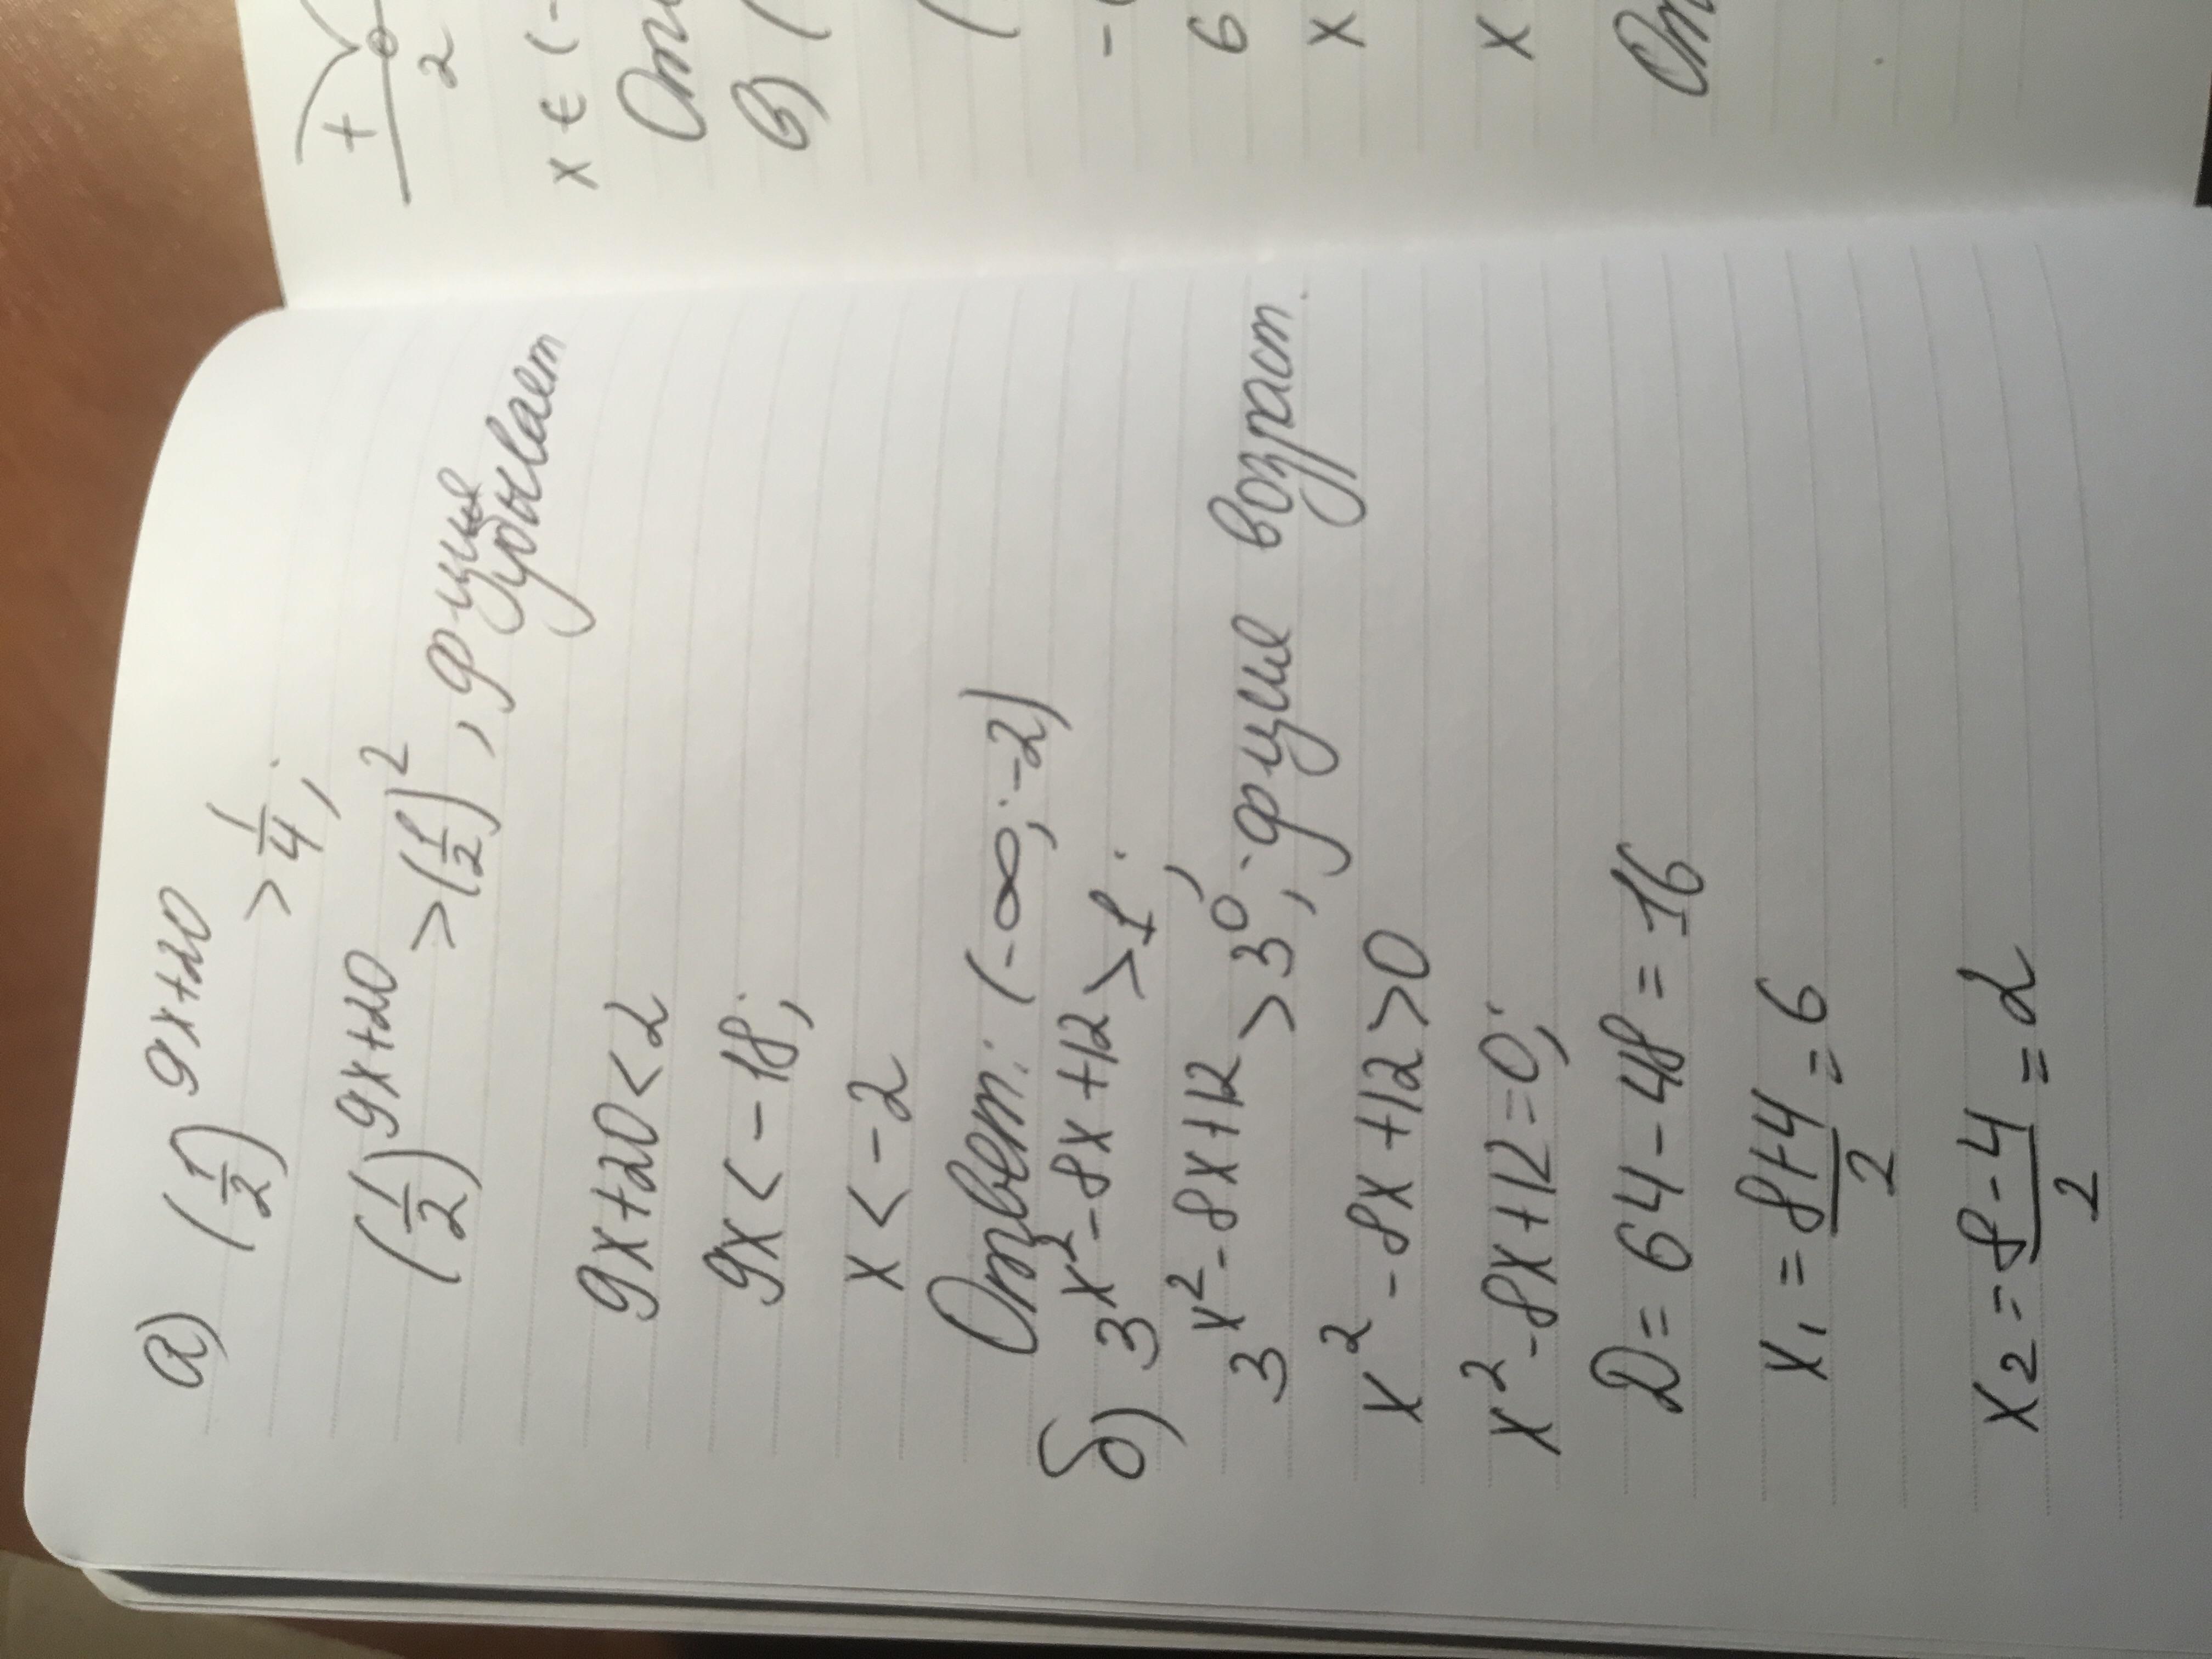 а) (1/2)^9x+20 > 1/4;
(1/2)^9x+20 > (1/2)^2, ф-ция убывает
9x+20<2
9x<-18;
x<-2
Ответ: (-∞; -2)
б) 3^x²-8x+12 > 1;
3^x²-8x+12 > 3^0, ф-ция возраст.
x²-8x+12>0
x²-8x+12=0;
D=64-48=16
x₁=(8+4)/2=6
x₂=(8-4)/2=2
+
2
x ∈ (-
в) (
(
-(
6
x
x